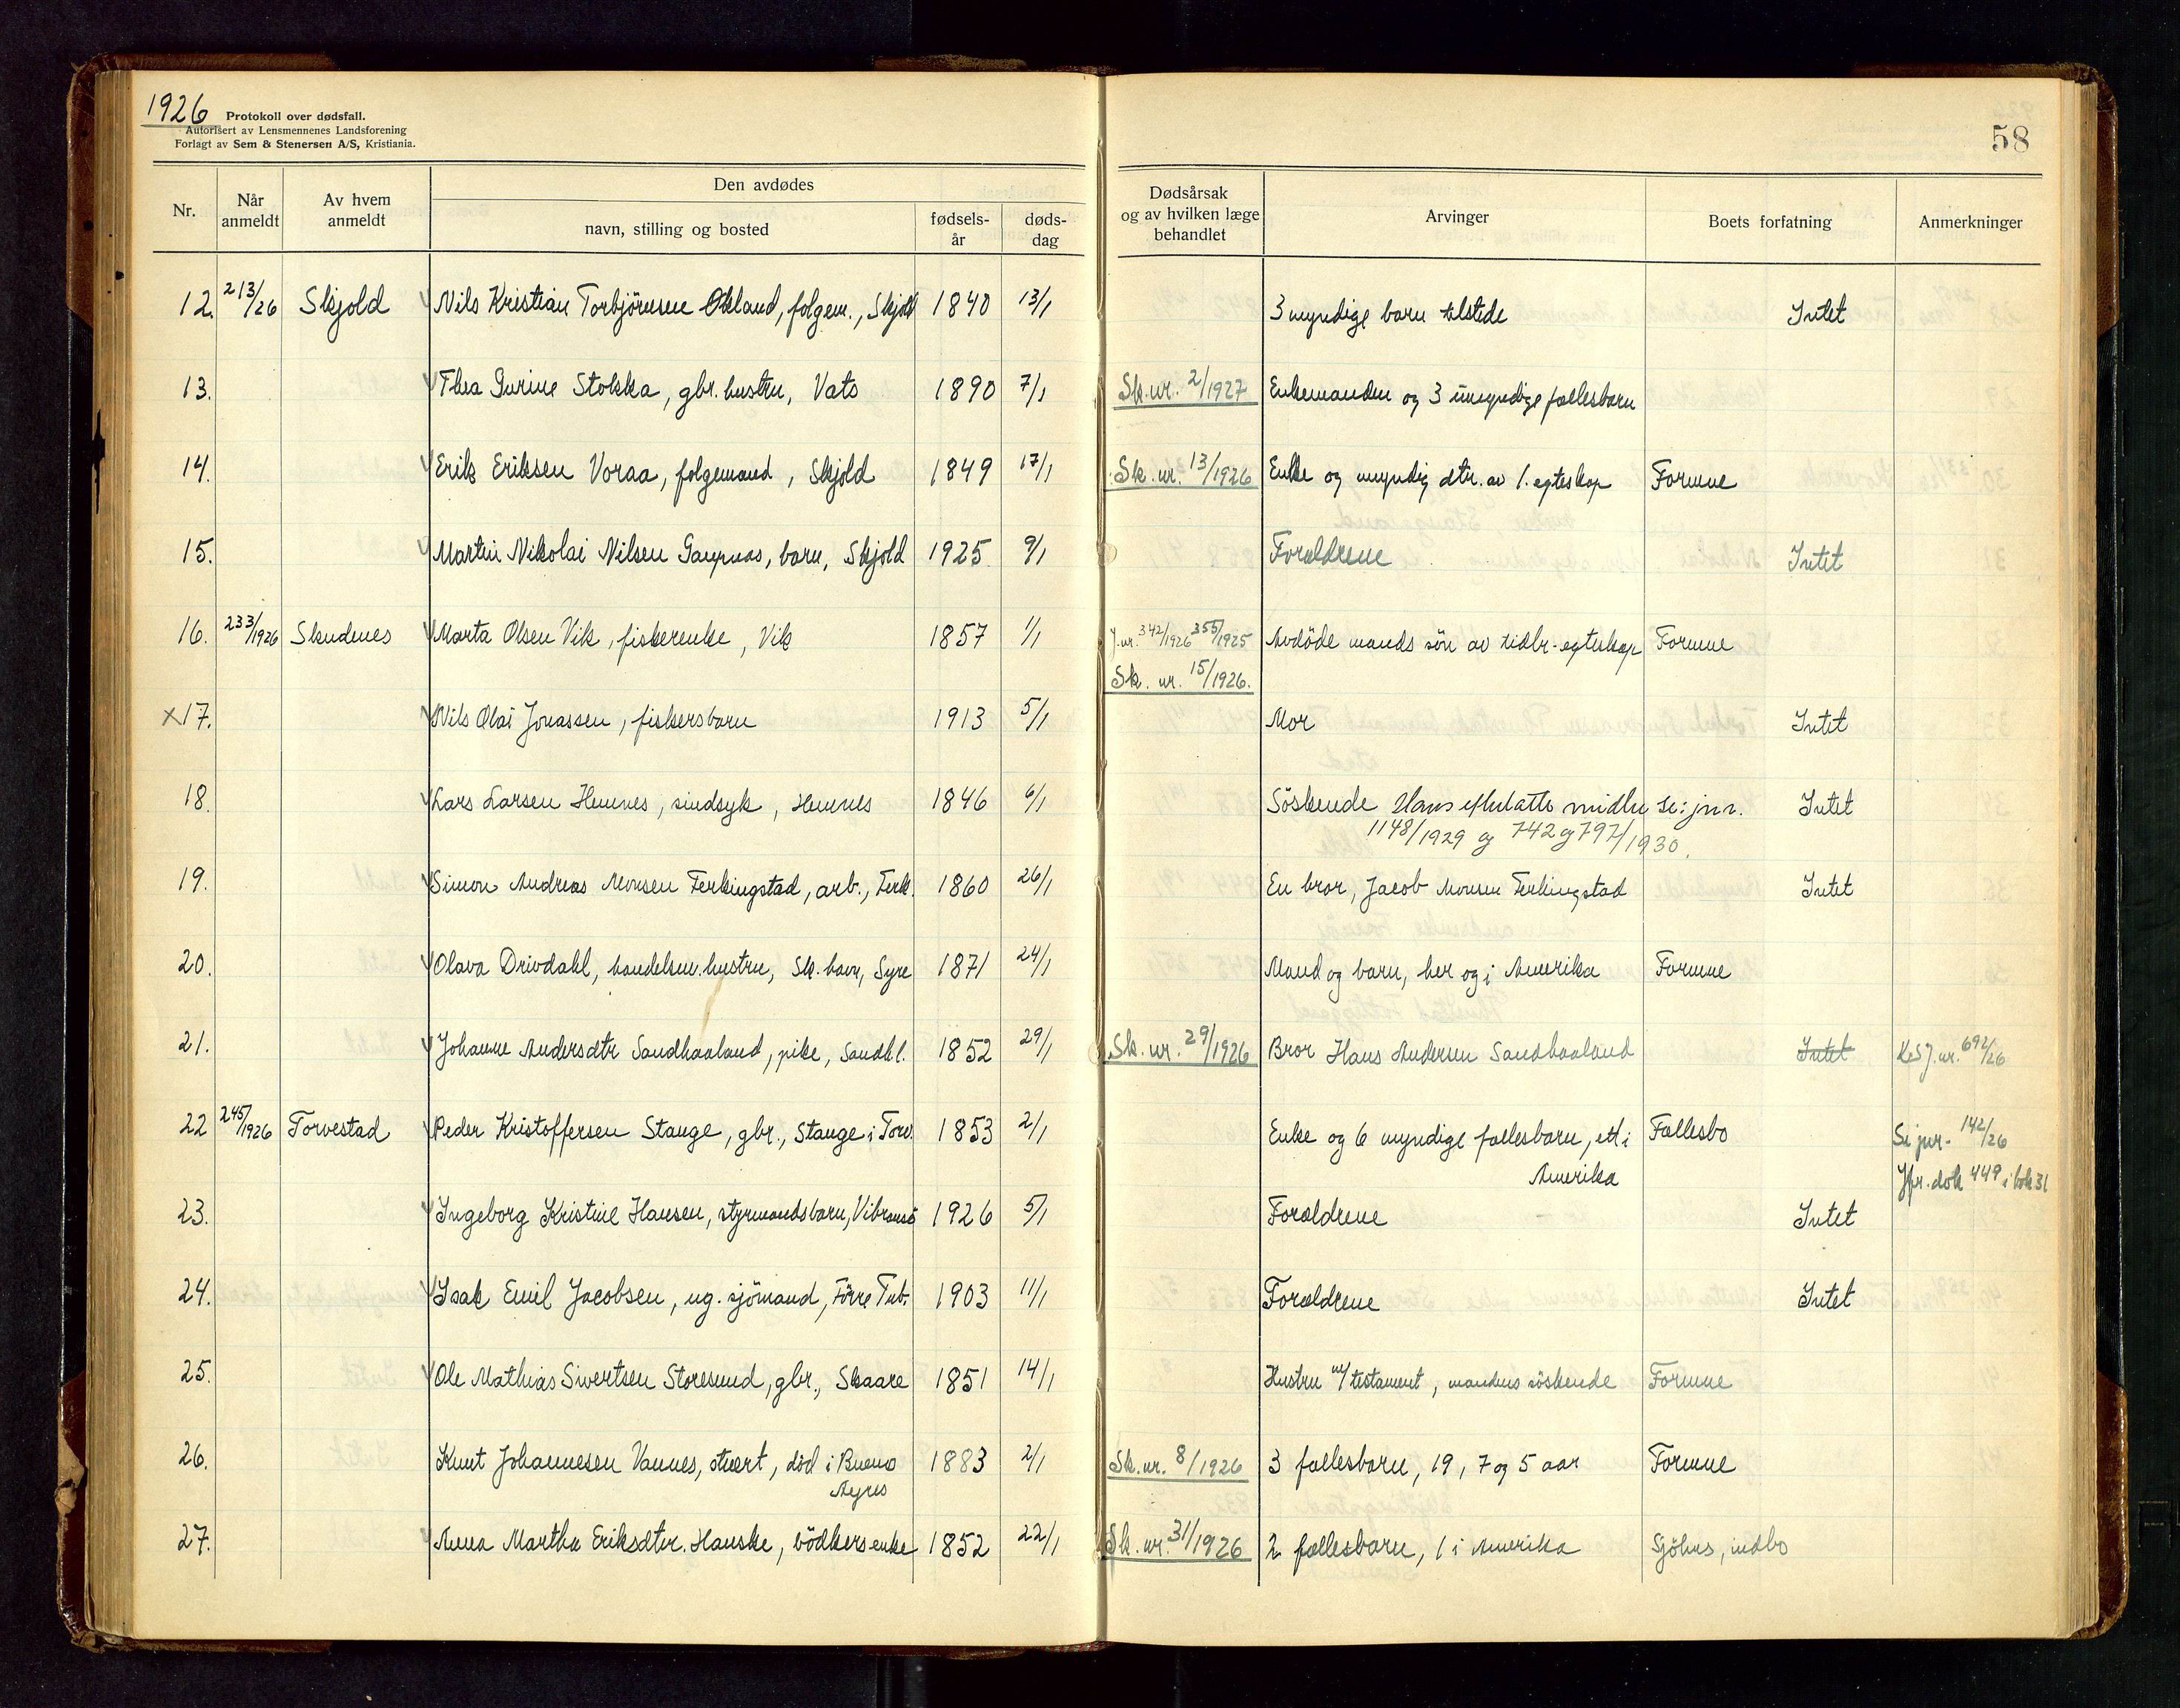 1926 Protokoll over dødsfall.
Autorisert av Lensmennenes Landsforening
Forlagt av Sem & Stenersen A/S, Kristiania.
58
Nr. Når anmeldt Av hvem anmeldt Den avdødes navn, stilling og bosted fødselsår dødsdag Dødsårsak og av hvilken læge behandlet Arvinger Boets forfatning Anmerkninger
12. 213/26 Skjold Nils Kristian Torbjørnsen Økland, folgem., Skjold 1840 13/1 3 myndige barn tilstede Intet
13. Thea Gurine Stokka, gbr. hustru, Vats 1890 7/1 Sk. nr. 2/1927 Enkemanden og 3 umyndige fællesbarn
14. Erik Eriksen Voraa, folgemand, Skjold 1849 17/1 Sk. nr. 13/1926 Enke og myndig dtr. av 1. egteskap Formue
15. Martin Nikolai Nilsen, barn, Skjold 1925 9/1 Forældrene Intet
16. 233/1926 Skudenes Marta Olsen Vik, fiskerenke, Vik 1857 1/1 J.nr. 342/1926 355/1925 Avdöde mands sön av tidlr. egteskap Formue
Sk. nr. 15/1926.
x17. Nils Olai Jonassen, fiskersbarn 1913 5/1 Mor Intet
18. Lars Larsen Hemnes, sindsyk, Hemnes 1846 6/1 Söskende Hans efterlatte midler se: jnr. Intet
1148/1929 og 742 og 797/1930.
19. Simon Andreas Monsen Ferkingstad, arb., Ferk. 1860 26/1 En bror, Jacob Monsen Ferkingstad Intet
20. Olava Drivdahl, handelsm. hustru, Sk. havn, Syre 1871 24/1 Mand og barn, her og i Amerika Formue
21. Johanne Andersdtr Sandhaaland, pike, Sandhl. 1852 29/1 Sk. nr. 29/1926 Bror Hans Andersen Sandhaaland Intet J.nr. 692/26
22 245/1926 Torvestad Peder Kristoffersen Stange, gbr., Stange i Torv. 1853 2/1 Enke og 6 myndige fællesbarn, ett i Fællesbo Se jnr. 142/26
Amerika Jfr. dok 449 i bok 31
23. Ingeborg Kristine Hansen, styrmandsbarn, Vibransö 1926 5/1 Forældrene Intet
24. Isak Emil Jacobsen, ug. sjömand, Förre Tub. 1903 11/1 Forældrene Intet
25. Ole Mathias Sivertsen Storesund, gbr., Skaare 1851 14/1 Hustru m/testament, mandens söskende Formue
26. Knut Johannesen Vannes, stuert, död i Bueno 1883 2/1 Sk. nr. 8/1926 3 fællesbarn, 19, 7 og 5 aar Formue
Ayres
27. Anna Martha Eriksdtr. Hauske, bödkersenke 1852 22/1 Sk. nr. 31/1926 2 fællesbarn, 1 i Amerika Sjöhus, indbo